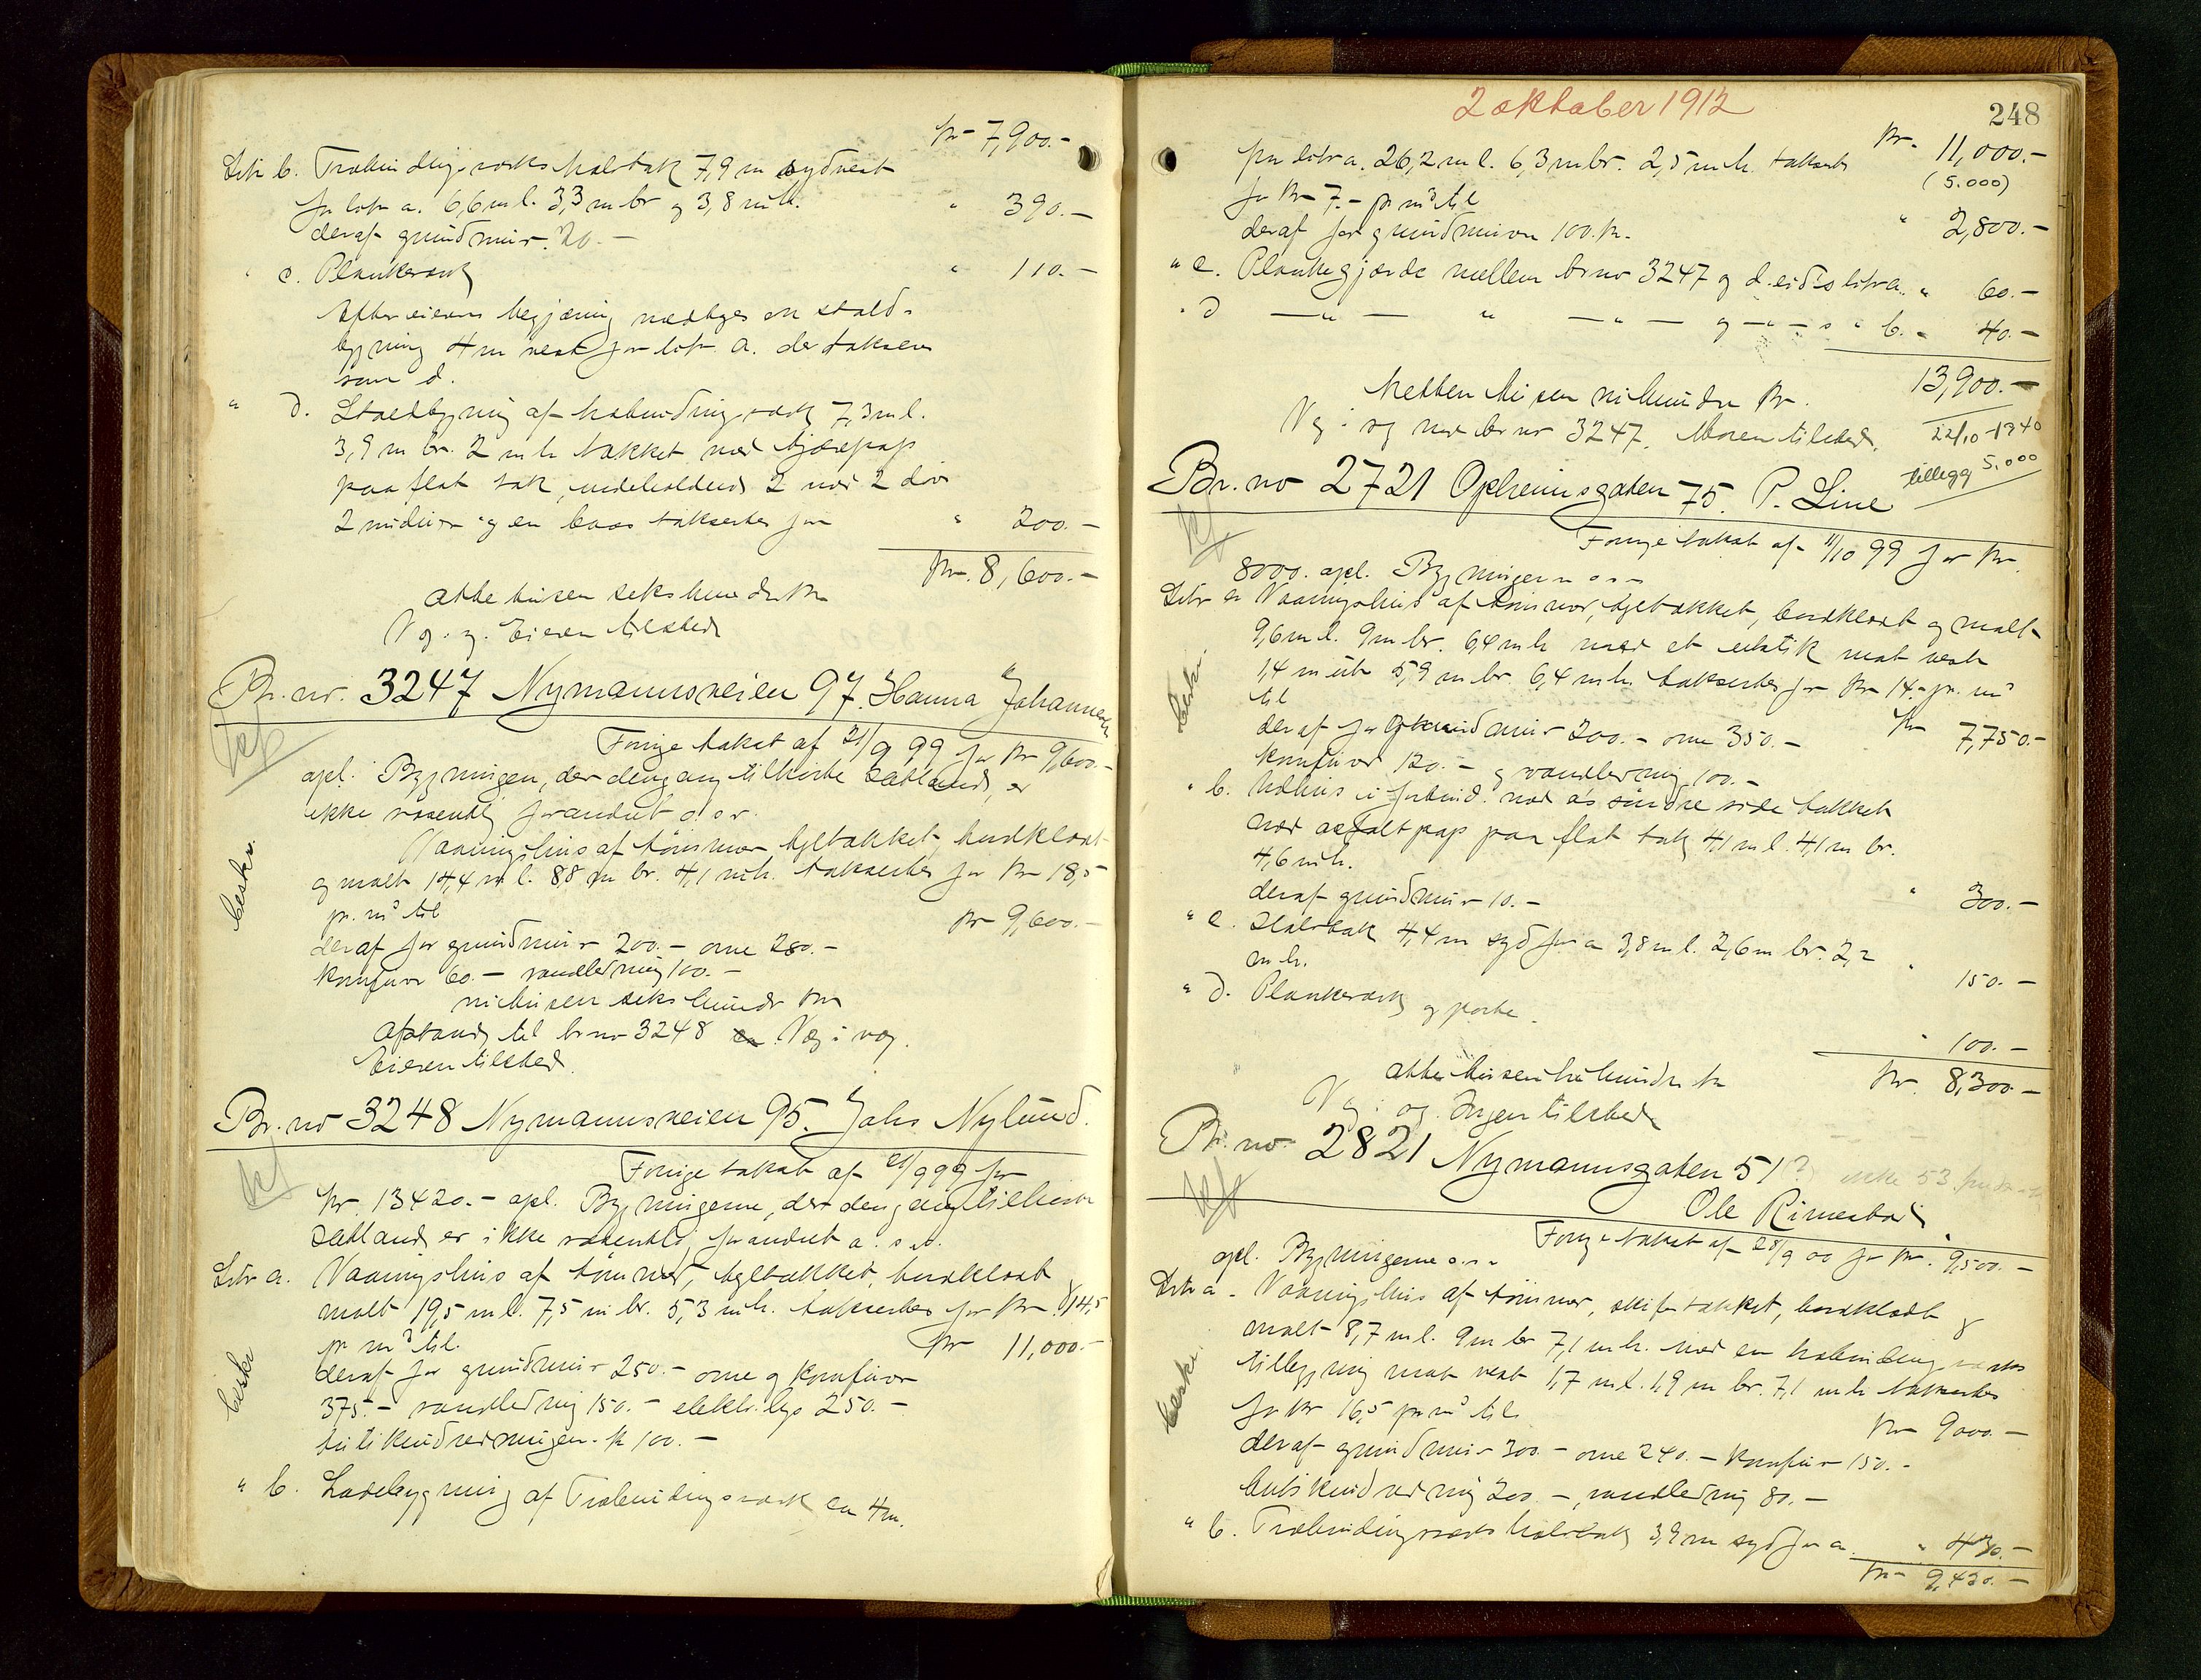 kr 7,900.-
Litr b. Træbindingsværks halvtak 7,9 m sydvest
for litr a. 6,6 m l. 3,3 m br og 3,8 m h. " 390.-
deraf grundmur 20.-
" c. Plankeværk " 110.-
Efter eierens begjæring medtages en stald-
bygning 4 m vest for litr. a. der takseres
som d.
" d. Staldbygning af træbindingsværk 7,3 m l.
3,9 m br. 2 m h. tækket med tjærepap
paa flat tak, indeholdende 2 rum 2 døre
2 vinduer og en baas takseres for " 200.-
kr. 8,600.-
otte tusen seks hundre kr
Væg. Eieren tilstede
Br. nr. 3247 Nymannsveien 97. Hanna Johannesen
Forrige takst af 21/9 99 for kr 9,600.-
opl. Bygningen, der dengang tilhørte Sætland, er
ikke væsentlig forandret o. s. v.
Vaaningshus af tømmer, tgltækket, bordklædt
og malt 14,4 m l. 8,8 m br. 4,1 m h. takseres for kr 18,5
pr. m³ til kr 9,600.-
deraf for grundmur 200.- ovne 280.-
komfur 60.- vandledning 100.-
ni tusen seks hundre kr
Afstand til br no 3248 Væg i væg.
Eieren tilstede.
beskr.
Br. no 3248 Nymannsveien 95. Johs Nylund.
Forrige takst af 21/9 99 for
kr. 13420.- opl. Bygningerne, der dengang tilhørte
Sætland, er ikke væsentlig forandret o. s. v.
Litr a. Vaaningshus af tømmer, tgltækket, bordklædt
malt 19,5 m l. 7,5 m br. 5,3 m h. takseres for kr 14,5
pr m³ til kr 11,000.-
deraf for grundmur 250.- ovne og komfur
375.- vandledning 150.- elektr. lys 250.-
butikindredningen kr 100.-
beskr
" b. Ladebygning af Træbindingsværk ca 4 m.
2 oktober 1912
248
kr. 11,000.-
(5.000)
fra litr a. 26,2 m l. 6,3 m br. 2,5 m h. takseres
for kr 7.- pr m³ til " 2,800.-
deraf for grundmuren 100 kr.
" c. Plankegjærde mellem br no 3247 og d. eids litr a. " 60.-
" d —"— " —"— og —"— s " b. " 40.-
13,900.-
tretten tusen nihundre kr.
Væg i væg med br no 3247. tilstede.
22/10 - 1940
tillegg 5,000
Br. no 2721 Opheimsgaten 75. P. Line
Forrige takst af 11/10 99 for kr.
8000. opl. Bygningerne o s v
Litr a Vaaningshus af tømmer, tgltækket, bordklædt og malt
9,6 m l. 9 m br. 6,4 m h. med et utstik mot vest
1,4 m ut 5,9 m br. 6,4 m h. takseres for kr 14.- pr. m³
til kr 7,750.-
deraf for grundmur 200.- ovne 350.-
komfur 120.- og vandledning 100.-
beskr.
" b. Udhus i forbind. med a's søndre side tækket
med asfaltpap paa flat tak 4,1 m l. 4,1 m br.
4,6 m h. " 300.-
deraf grundmur 10.-
" c. Halvtak 4,4 m syd for a 3,8 m l. 2,6 m br. 2,2
m h. " 150.-
" d. Plankeværk og porte. " 100.-
kr. 8,300.-
otte tusen trehundre kr
Væg i væg. Ingen tilstede
Br. no. 2821 Nymannsgaten 51? ikke 53
Ole Rimestad
Forrige takst af 28/9 00 for kr. 9,500.-
opl. Bygningerne o. s. v
Litr a. Vaaningshus af tømmer, skifertækket, bordklædt
malt 8,7 m l. 9 m br 7,1 m h. med en træbindingsværks
tilbygning mot vest 1,7 m l. 1,9 m br. 7,1 m h takseres
for kr 16,5 pr m³ til kr 9000.-
deraf grundmur 300.- ovne 240.- komfur 150.-
butikindredning 200.-, vandledning 80.-
beskr.
" b. Træbindingsværks halvtak 3,9 m syd for a. " 430.-
kr 9,430.-